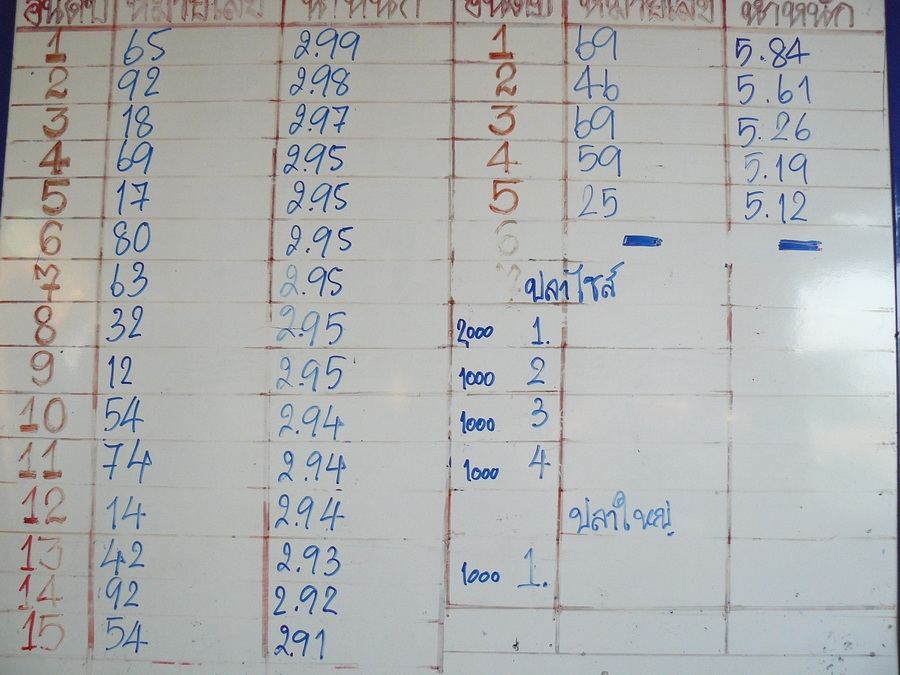 อันดับ หมายเลข น้ำหนัก อันดับ หมายเลข น้ำหนัก
1 65 2.99 1 69 5.84
2 92 2.98 2 46 5.61
3 18 2.97 3 69 5.26
4 69 2.95 4 59 5.19
5 17 2.95 5 25 5.12
6 80 2.95 6 - -
7 63 2.95 7 ปลาไซส์
8 32 2.95 2000 1.
9 12 2.95 1000 2
10 54 2.94 1000 3
11 74 2.94 1000 4
12 14 2.94 ปลาใหญ่
13 42 2.93 1000 1.
14 92 2.92
15 54 2.91